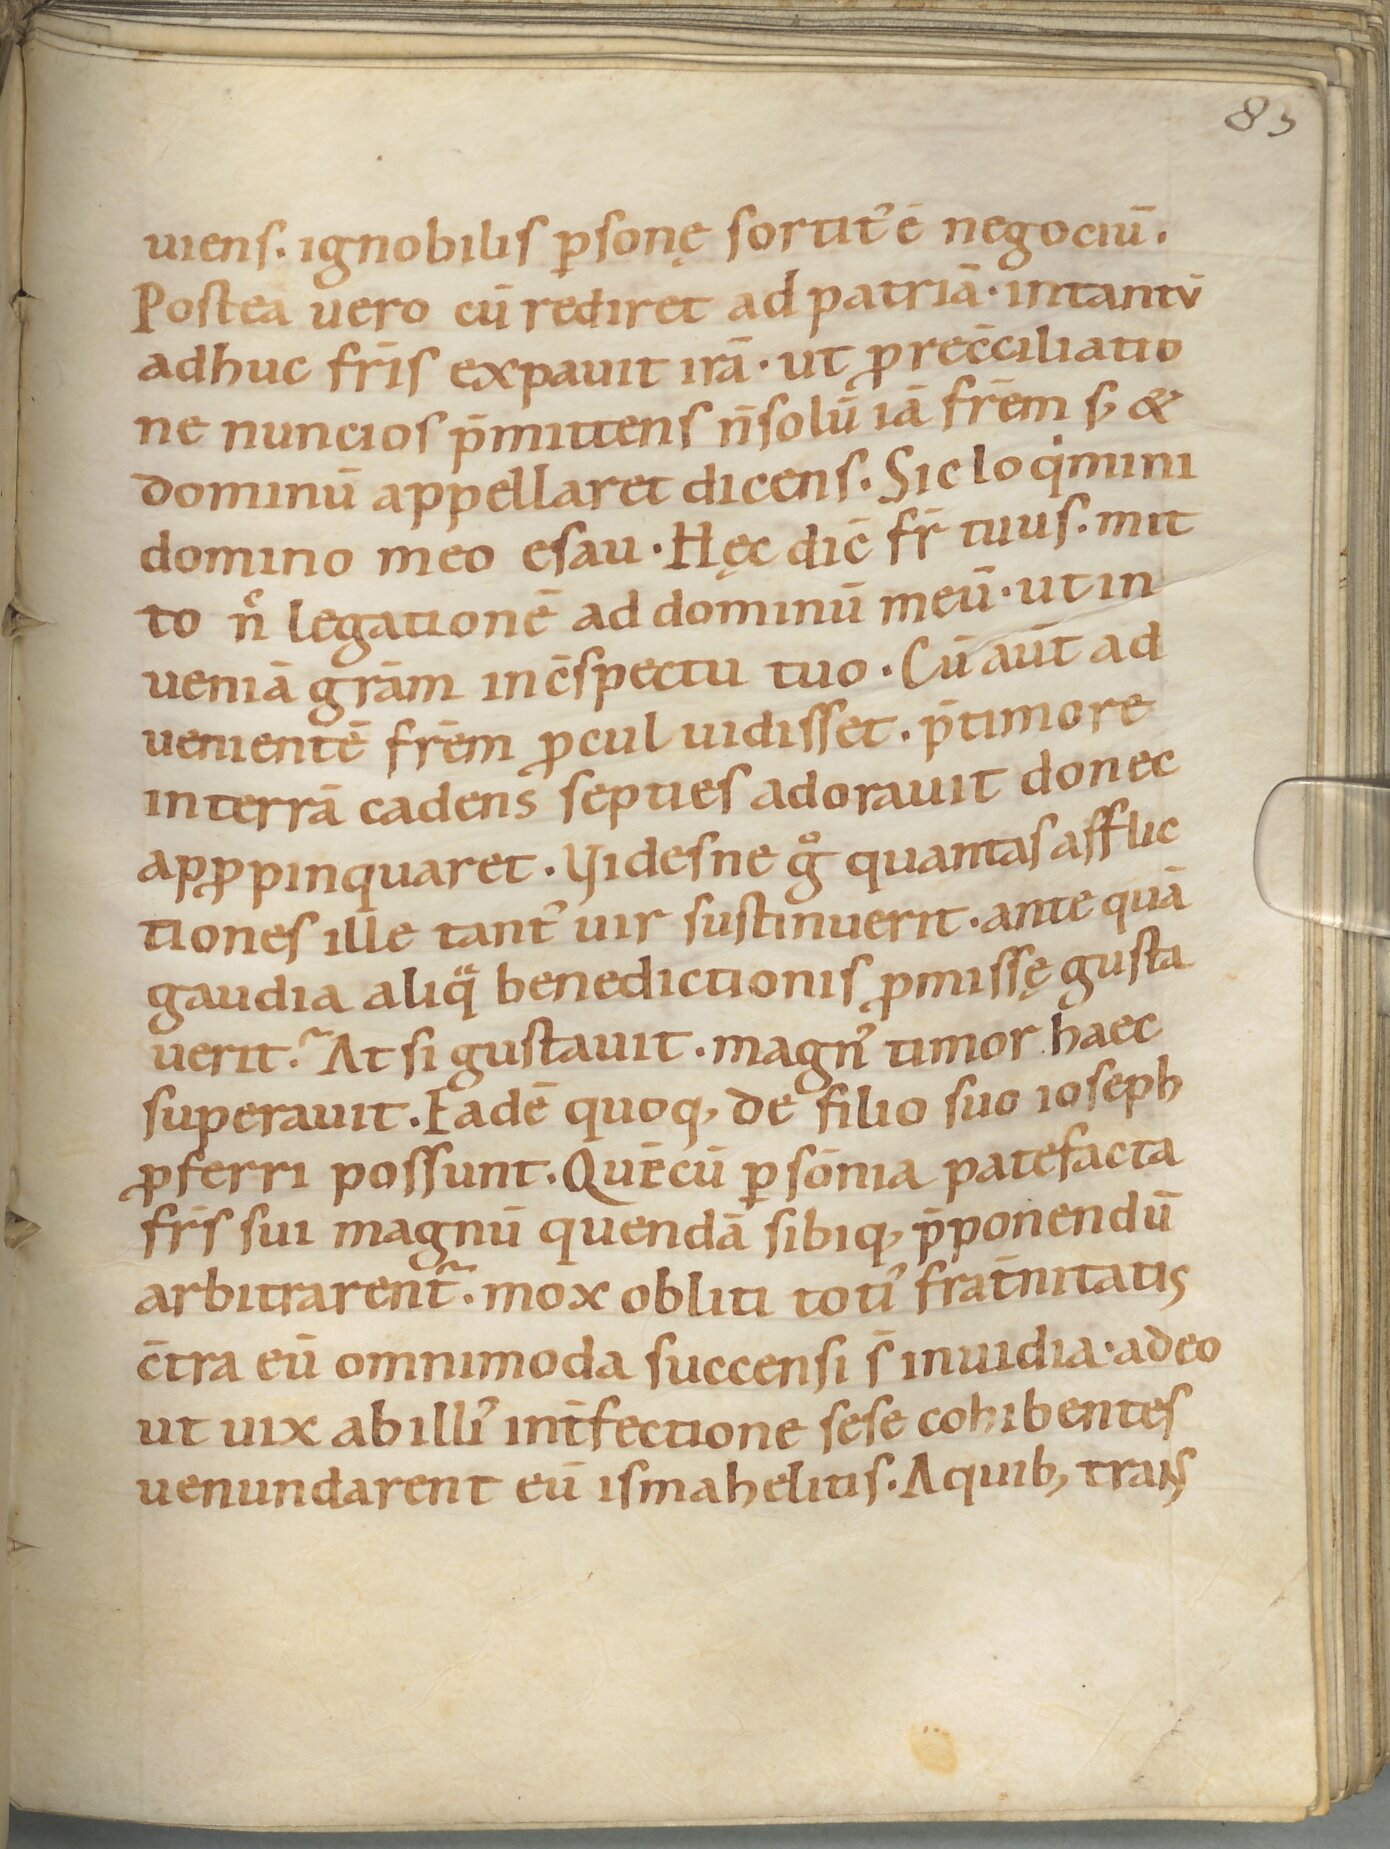 83
uiens. ignobilis p̲sonę sortit᾽ ē negociū.
Postea uero cū rediret ad patriā· intantū
adhuc fr̄is expauit irā· ut ꝓ rec̄ciliatio
ne nuncios p̄mittens n̄ solū iā fr̄em s; &
dominū appellaret dicens. Sic loqi̇mini
domino meo esau· Hęc dic̄ fr̄ tuus. mit
to nͨ legationē ad dominū meū· ut in
ueniā gr̄am in c̄spectu tuo. Cū aūt ad
uenientē fr̄em ꝓcul uidisset. p̄ timore
in terrā cadens septies adorauit donec
apꝓpinquaret. Videsne gͦ quantas afflic
tiones ille tant᾽ uir sustinuerit. ante quā
gaudia aliqͣ benedictionis ꝓmissę gusta
uerit? At si gustauit. magn᾽ timor haec
superauit. Eadē quoq; de filio suo ioseph
ꝓferri possunt. Quē cū ꝑ sōnia patefacta
fr̄s sui magnū quendā sibiq; p̄ponendū
arbitrarent᷑. mox obliti toti᾽ frat̄nitatis
c̄tra eū omnimoda succensi s̄ inuidia· adeo
ut uix ab illi᾽ int̄fectione sese cohibentes
uenundarent eū ismahelitis. A quib; trans